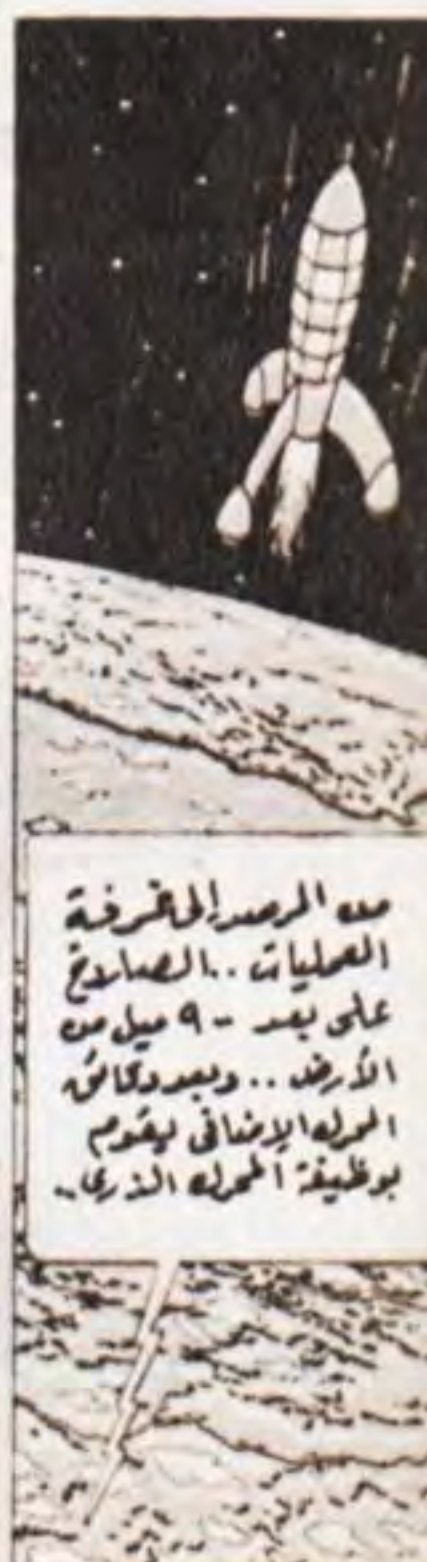 من المرصد إلى غرفة
العمليات .. الصاروخ
على بعد ٩٠ ميل من
الأرض .. وبعد دقائق
المحرك الإضافى ليقوم
بوظيفة المحرك الذرى ..